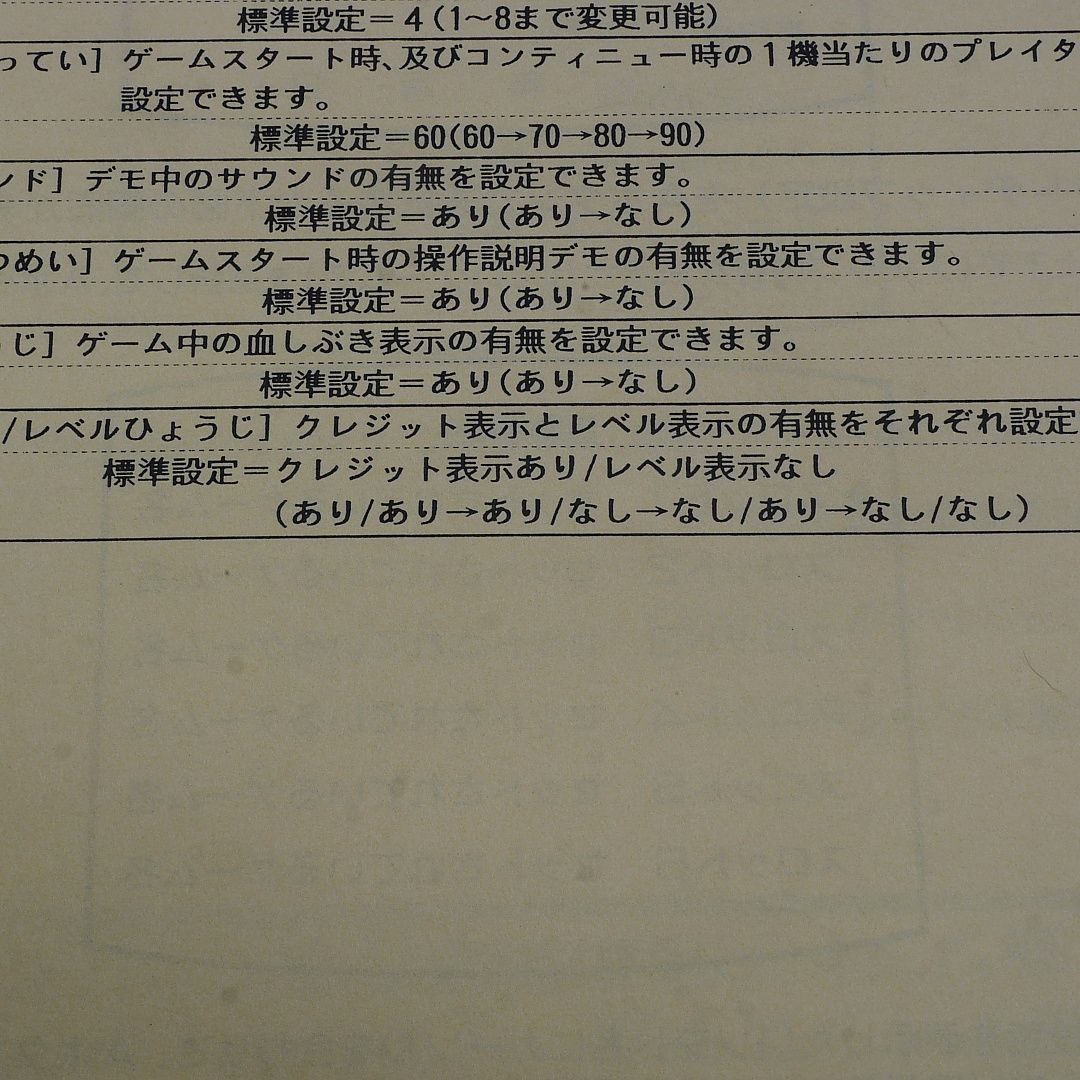 標準設定＝4(1～8まで変更可能)
ってい］ゲームスタート時、及びコンティニュー時の1機当たりのプレイタ
設定できます。
標準設定＝60(60→70→80→90)
ンド］デモ中のサウンドの有無を設定できます。
標準設定＝あり(あり→なし)
つめい］ゲームスタート時の操作説明デモの有無を設定できます。
標準設定＝あり(あり→なし)
うじ］ゲーム中の血しぶき表示の有無を設定できます。
標準設定＝あり(あり→なし)
/レベルひょうじ］クレジット表示とレベル表示の有無をそれぞれ設定
標準設定＝クレジット表示あり/レベル表示なし
(あり/あり→あり/なし→なし/あり→なし/なし)